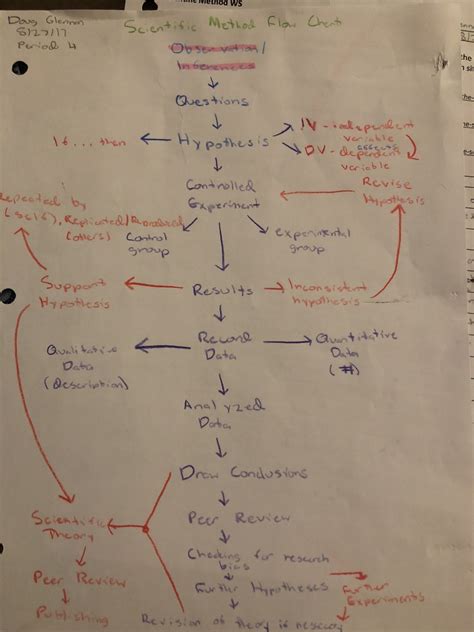 Method WS
Doug Glennon
8/29/17
Period 4
Scientific Method Flow Chart
Observation/
Inferences
Questions
If... then
Hypothesis
IV - independent
variable
effects
DV - dependent
variable
Controlled
Experiment
Revise
Hypothesis
Repeated by
(self), Replicated/Reproduced
(others)
Control
group
experimental
group
Support
Hypothesis
Results
Inconsistent
hypothesis
Qualitative
Data
(description)
Record
Data
Quantitative
Data
(#)
Analyzed
Data
Draw Conclusions
Scientific
Theory
Peer Review
Checking for research
bias
Peer Review
Further Hypotheses
Further
Experiments
Publishing
Revision of theory if necessary